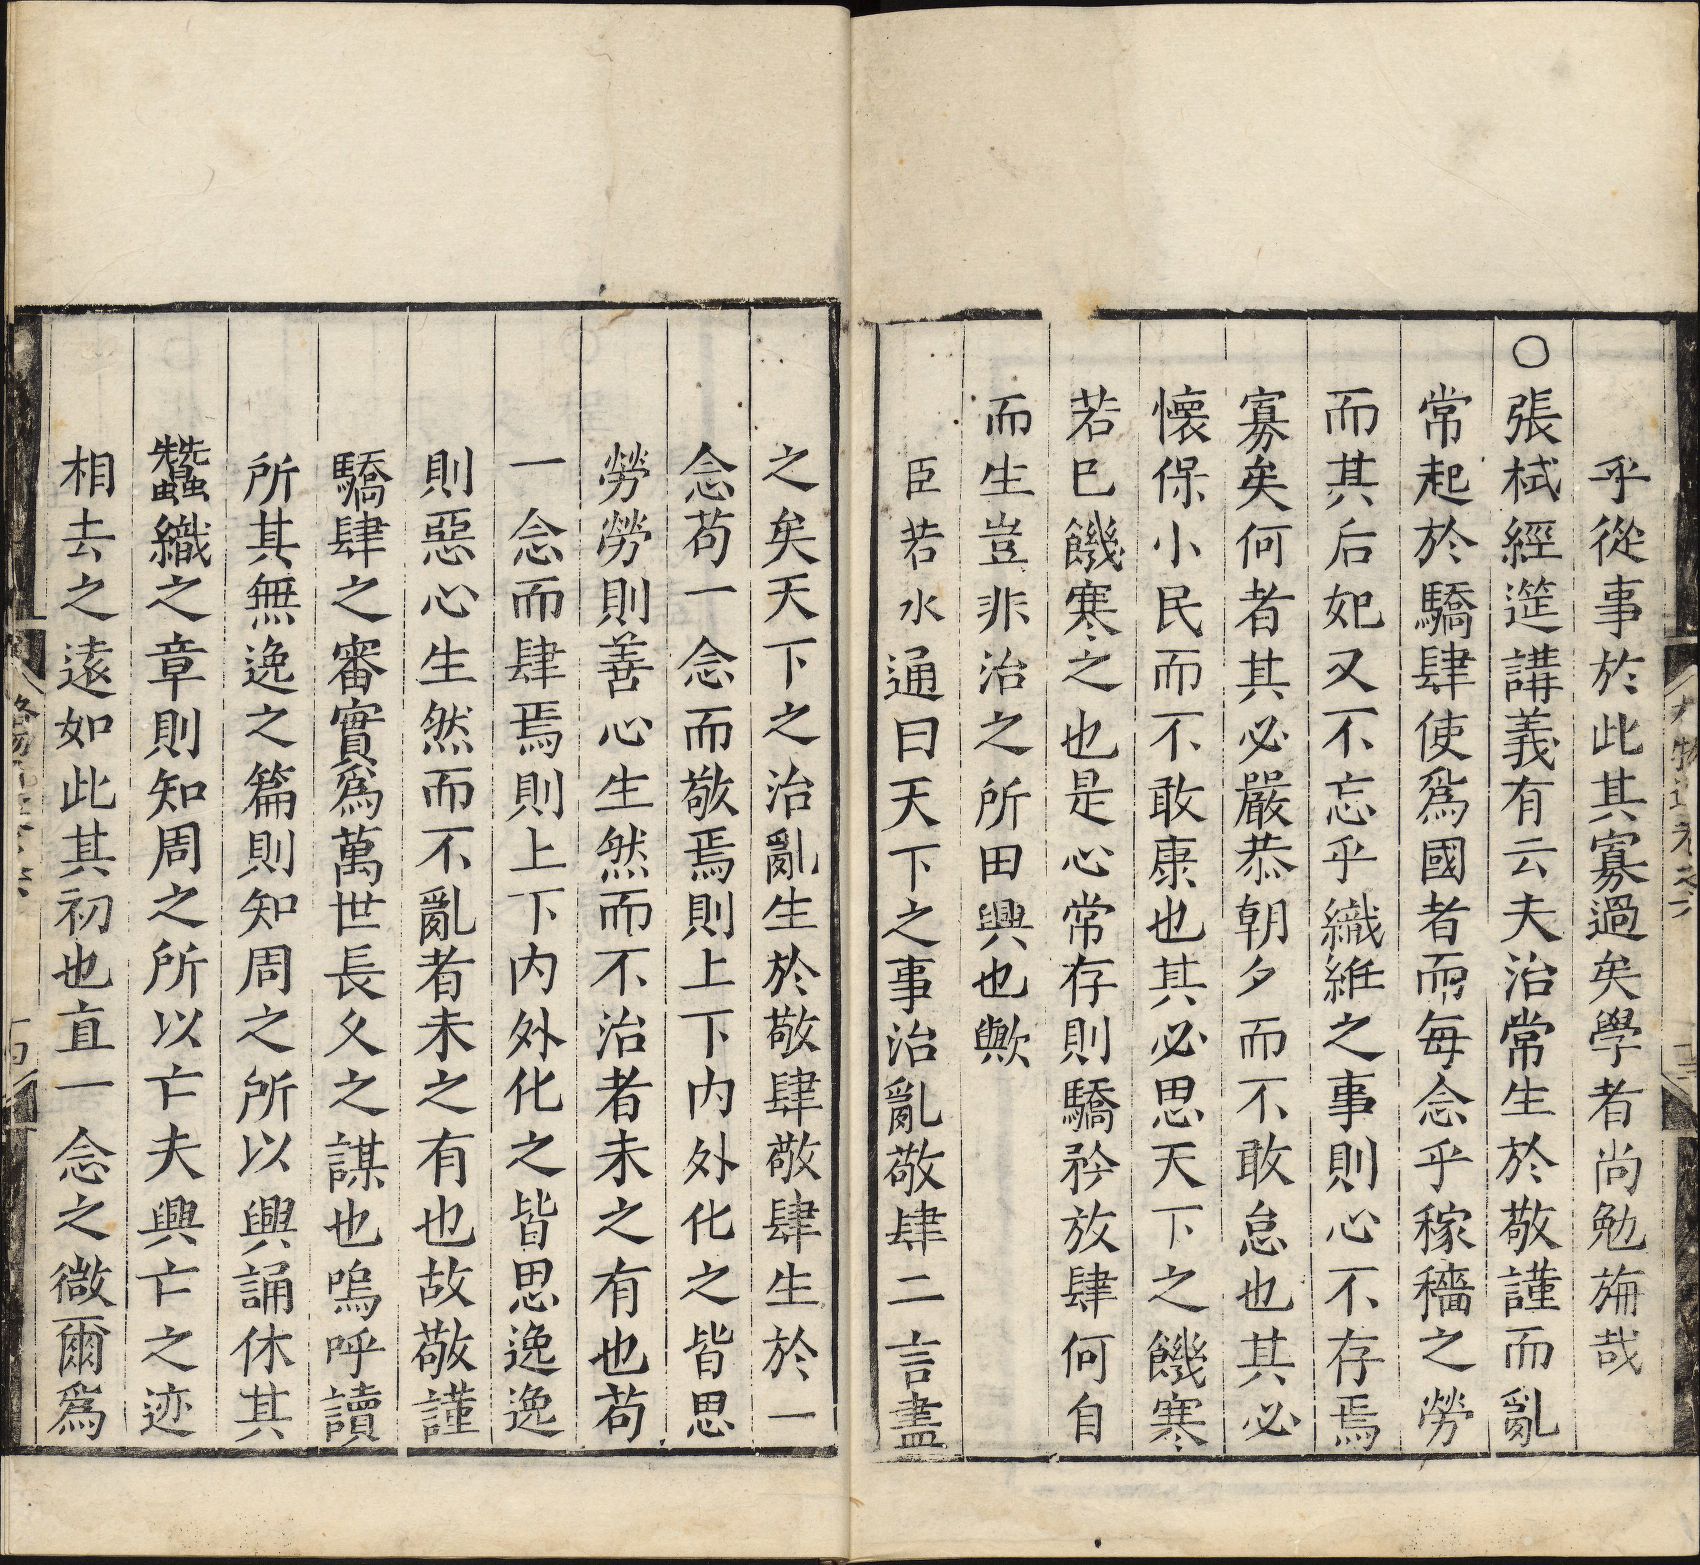 乎從事於此其寡過矣學者尚勉旃哉
○張栻經筵講義有云夫治常生於敬謹而亂
常起於驕肆使爲國者而每念乎稼穡之勞
而其后妃又不忘乎織維之事則心不存焉
寡矣何者其必嚴恭朝夕而不敢怠也其必
懷保小民而不敢康也其必思天下之饑寒
若巳饑寒之也是心常存則驕矜放肆何自
而生豈非治之所田興也歟
臣若水通曰天下之事治亂敬肆二言盡
之矣天下之治亂生於敬肆敬肆生於一
念苟一念而敬焉則上下内外化之皆思
勞勞則善心生然而不治者未之有也苟
一念而肆焉則上下内外化之皆思逸逸
則惡心生然而不亂者未之有也故敬謹
驕肆之審實爲萬世長乆之謀也嗚呼讀
所其無逸之篇則知周之所以興誦休其
蠶織之章則知周之所以亡夫興亡之迹
相去之遠如此其初也直一念之微爾爲